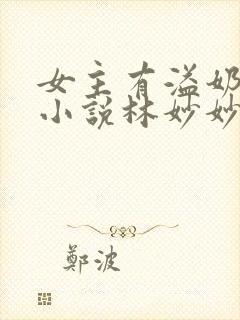 女主有溢奶
小說林妙妙
鄭波